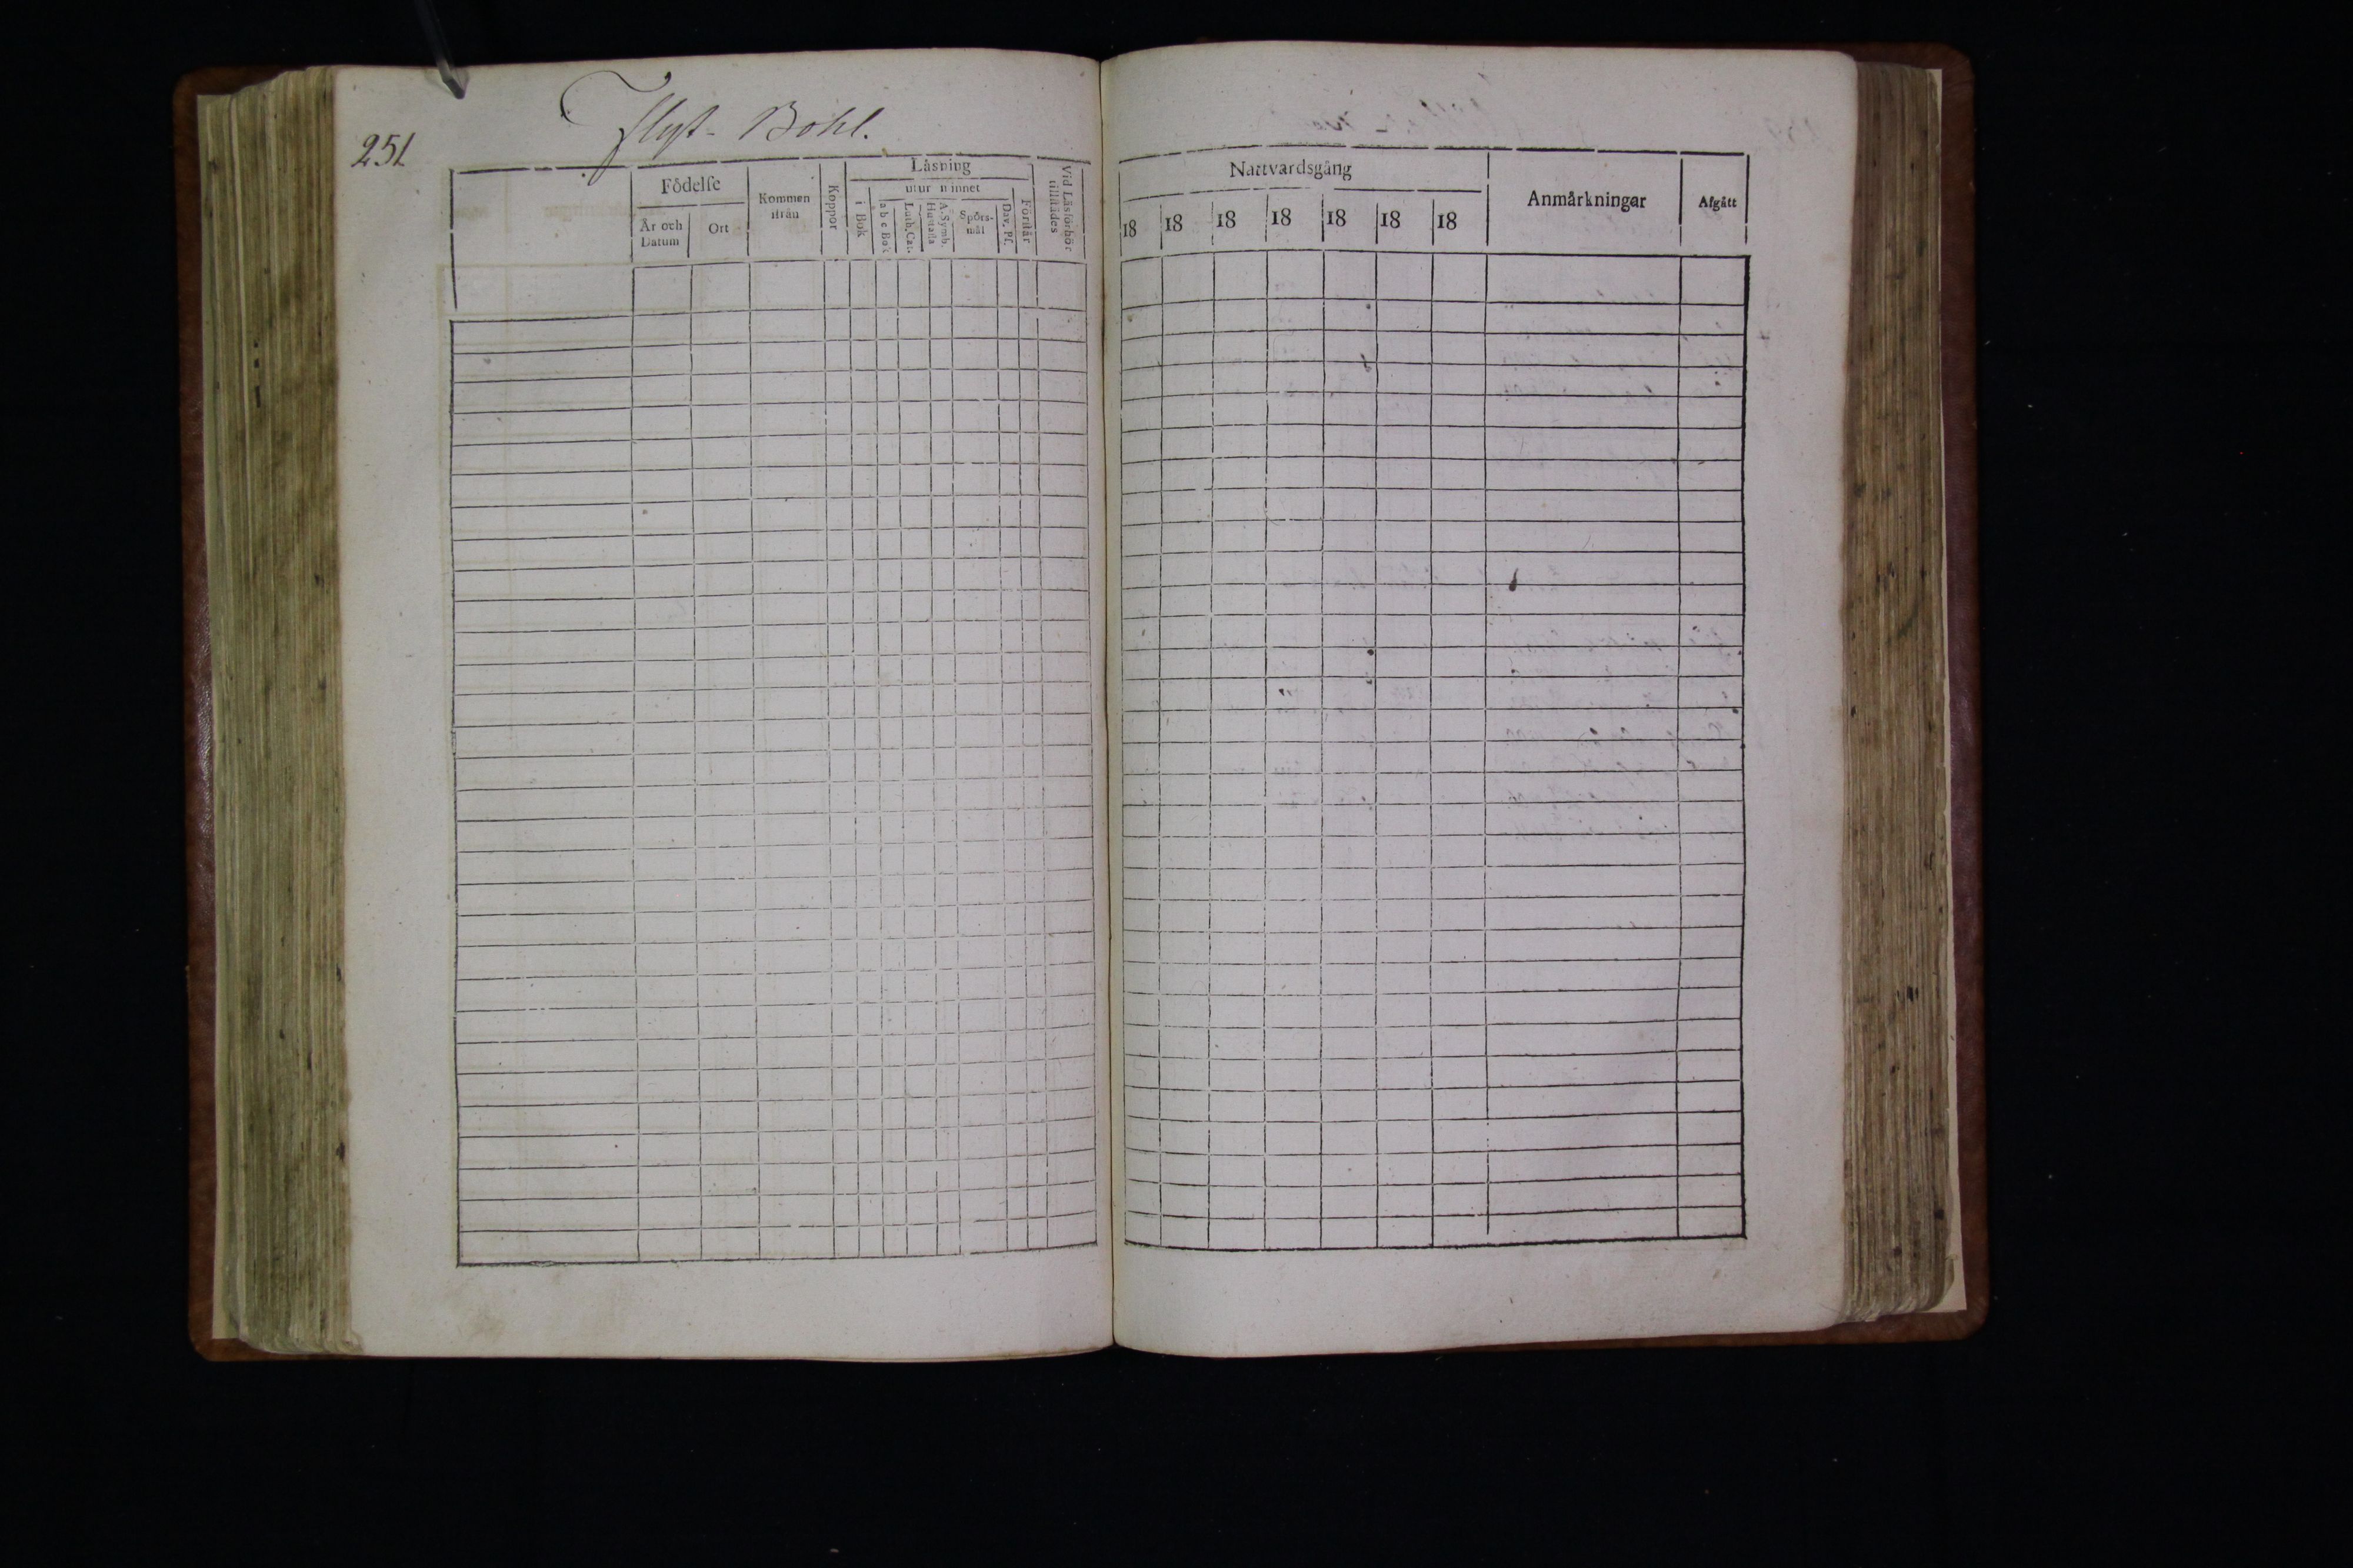 Flyt-Bohl.
251
Födelse
År och Datum
Ort
Kommen ifrån
Koppor
Läsning
i Bok
utur minnet
a b c Bok
Luth. Cat.
A. Symb. Hustafla
Spörsmål
Dav. Ps.
Förstår
Vid Läsförhör tillstädes
Nattvardsgång
18 18 18 18 18 18 18
Anmärkningar
Afgått